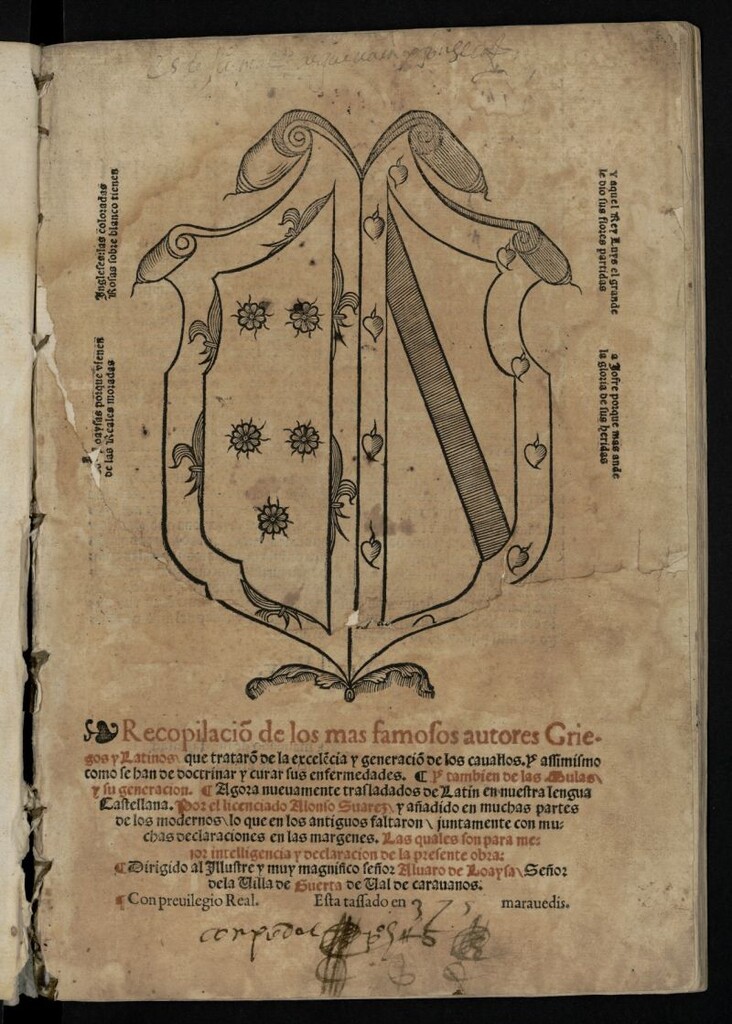 Inglesesilas coloradas
Rosas sobre blanco tienes
Loaysas porque vienes
de las Reales moradas
Y aquel Rey Luys el grande
le dio sus flores partidas
a Jofre porque mas ande
la gloria de sus heridas
Recopilaciõ de los mas famosos autores Grie-
gos y Latinos\ que tratarõ de la excelẽcia y generaciõ de los cauallos. Y assimismo
como se han de doctrinar y curar sus enfermedades. ¶ Y tambien de las Mulas\
y su generacion. ¶ Agora nueuamente trasladados de Latin en nuestra lengua
Castellana. Por el licenciado Alonso Suarez\ y añadido en muchas partes
de los modernos\ lo que en los antiguos faltaron\ juntamente con mu-
chas declaraciones en las margenes. Las quales son para me-
jor intelligencia y declaracion de la presente obra:
¶ Dirigido al Illustre y muy magnifico señor Aluaro de Loaysa\ Señor
dela Uilla de Guerta de Ual de carauanos.
¶ Con preuilegio Real. Esta tassado en 375 marauedis.